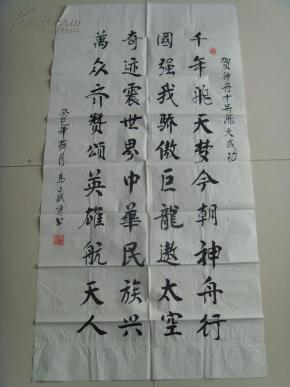 贺神舟十号飞天成功
千年飛天梦今朝神舟行
國强我骄傲巨龍遨太空
奇迹震世界中華民族兴
萬众齐赞颂英雄航天人
癸巳年荷月